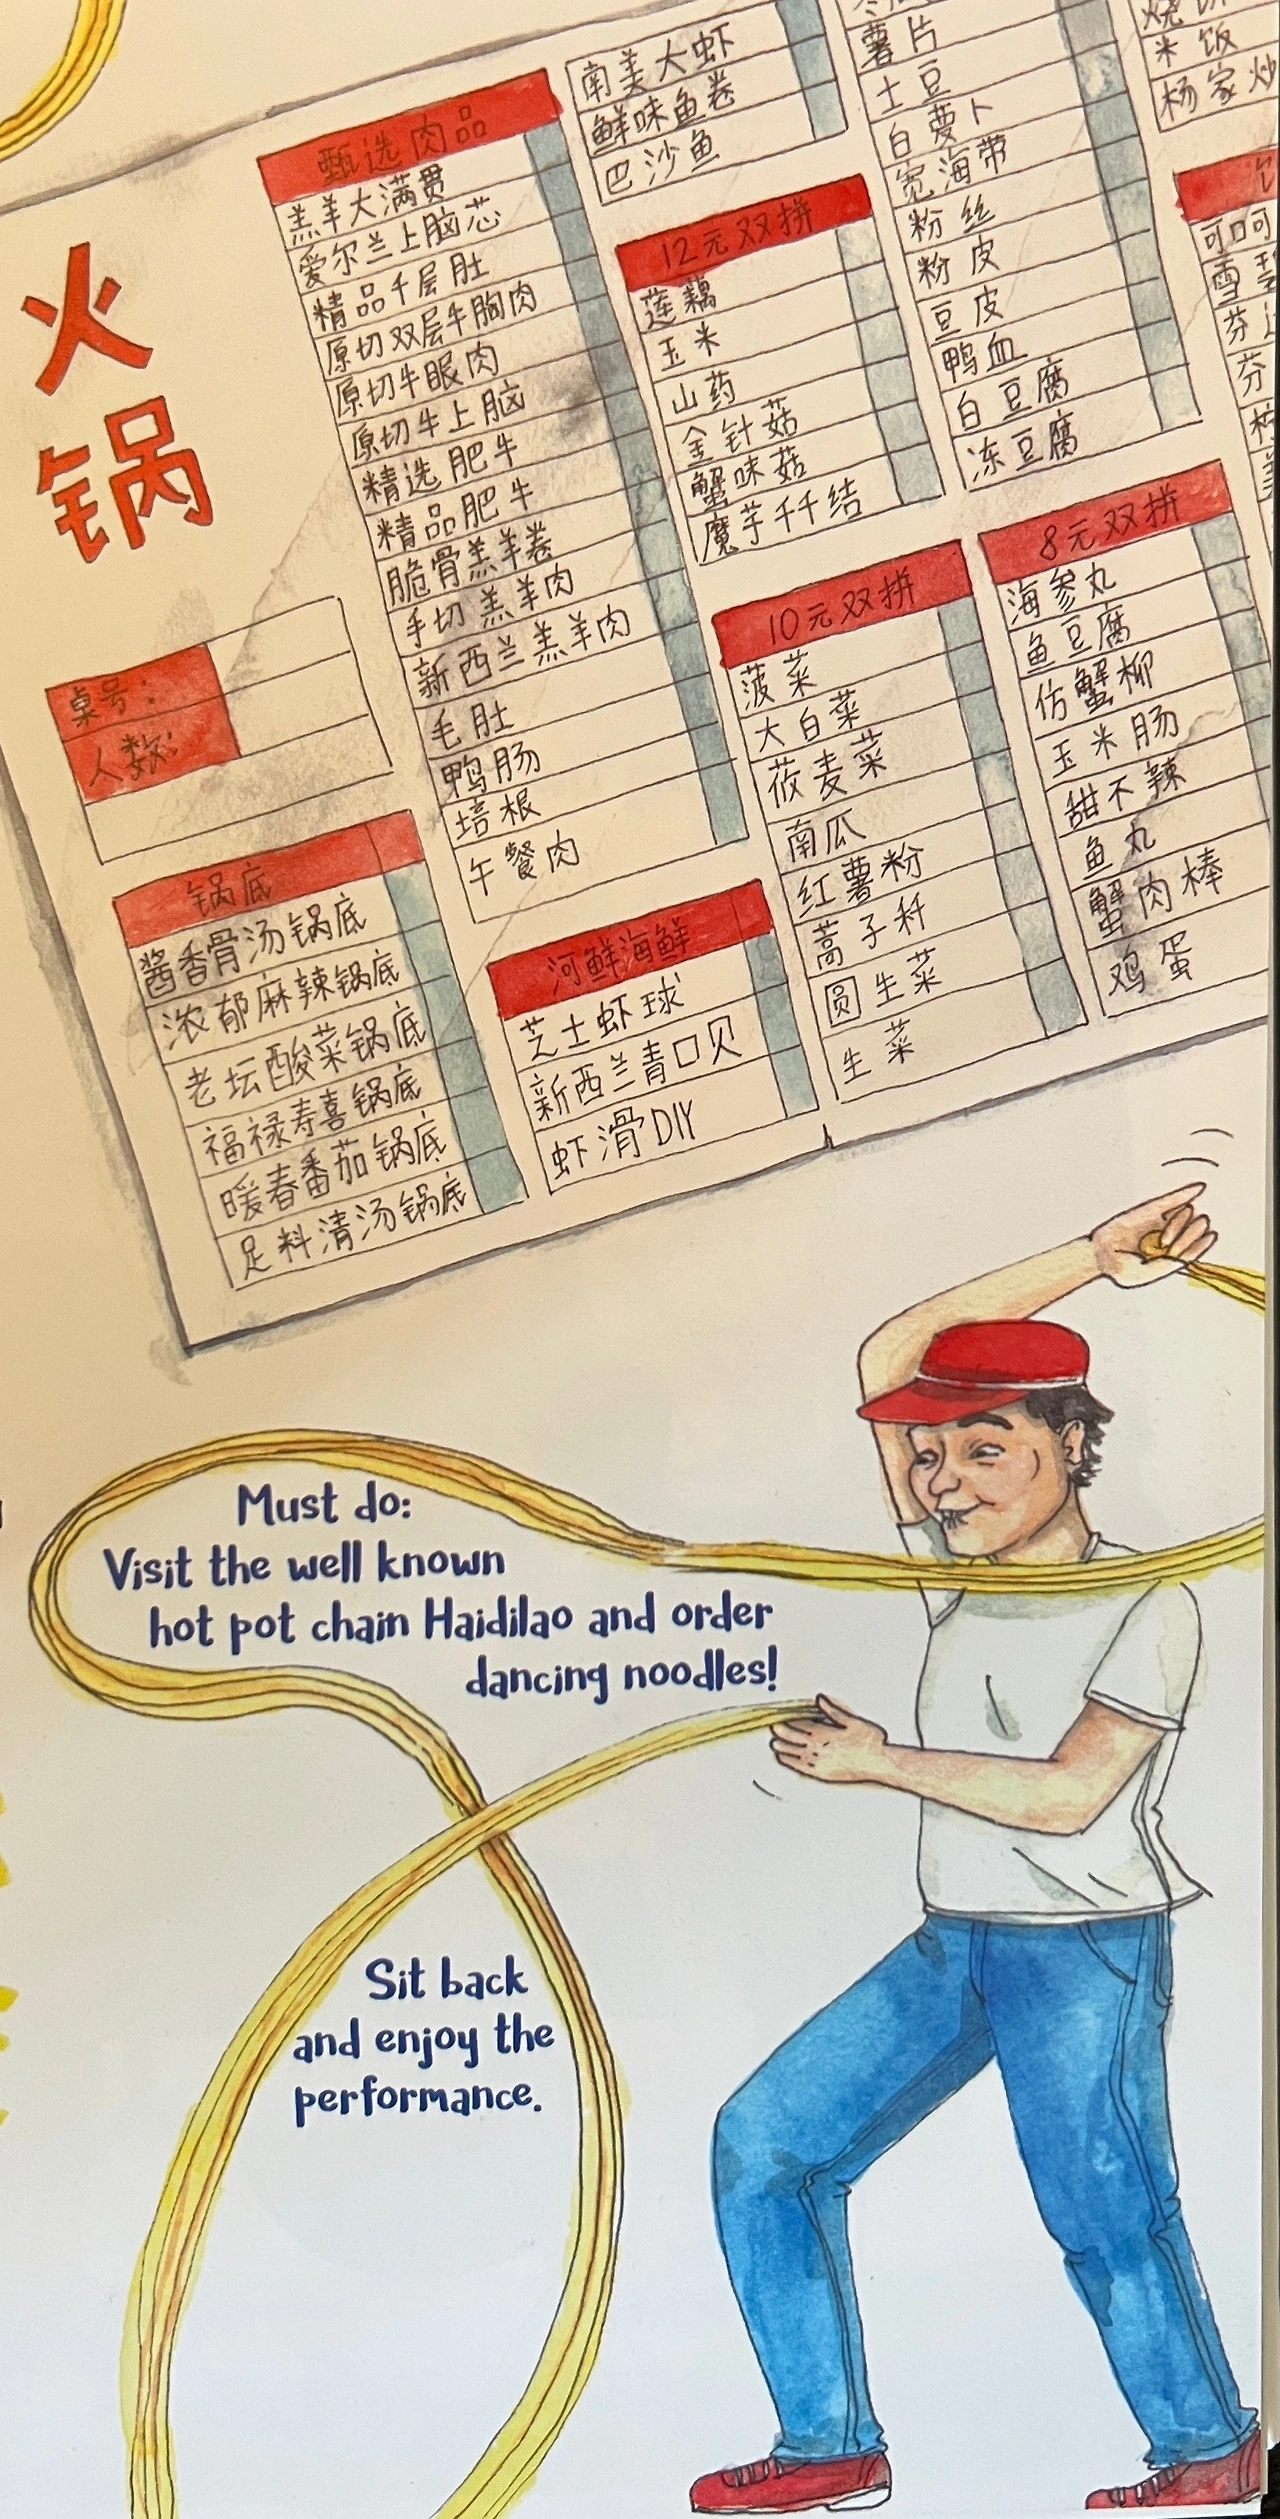 火
锅
桌号：
人数：
锅底
酱香骨汤锅底
浓郁麻辣锅底
老坛酸菜锅底
福禄寿喜锅底
暖春番茄锅底
足料清汤锅底
甄选肉品
羔羊大满贯
爱尔兰上脑芯
精品千层肚
原切双层牛胸肉
原切牛眼肉
原切牛上脑
精选肥牛
精品肥牛
脆骨羔羊卷
手切羔羊肉
新西兰羔羊肉
毛肚
鸭肠
培根
午餐肉
河鲜海鲜
芝士虾球
新西兰青口贝
虾滑DIY
南美大虾
鲜味鱼卷
巴沙鱼
12元双拼
莲藕
玉米
山药
金针菇
蟹味菇
魔芋千结
10元双拼
菠菜
大白菜
莜麦菜
南瓜
红薯粉
蒿子秆
圆生菜
生菜
薯片
土豆
白萝卜
宽海带
粉丝
粉皮
豆皮
鸭血
白豆腐
冻豆腐
8元双拼
海参丸
鱼豆腐
仿蟹柳
玉米肠
甜不辣
鱼丸
蟹肉棒
鸡蛋
米饭
杨家炒
可口可
雪碧
芬
Must do:
Visit the well known
hot pot chain Haidilao and order
dancing noodles!
Sit back
and enjoy the
performance.